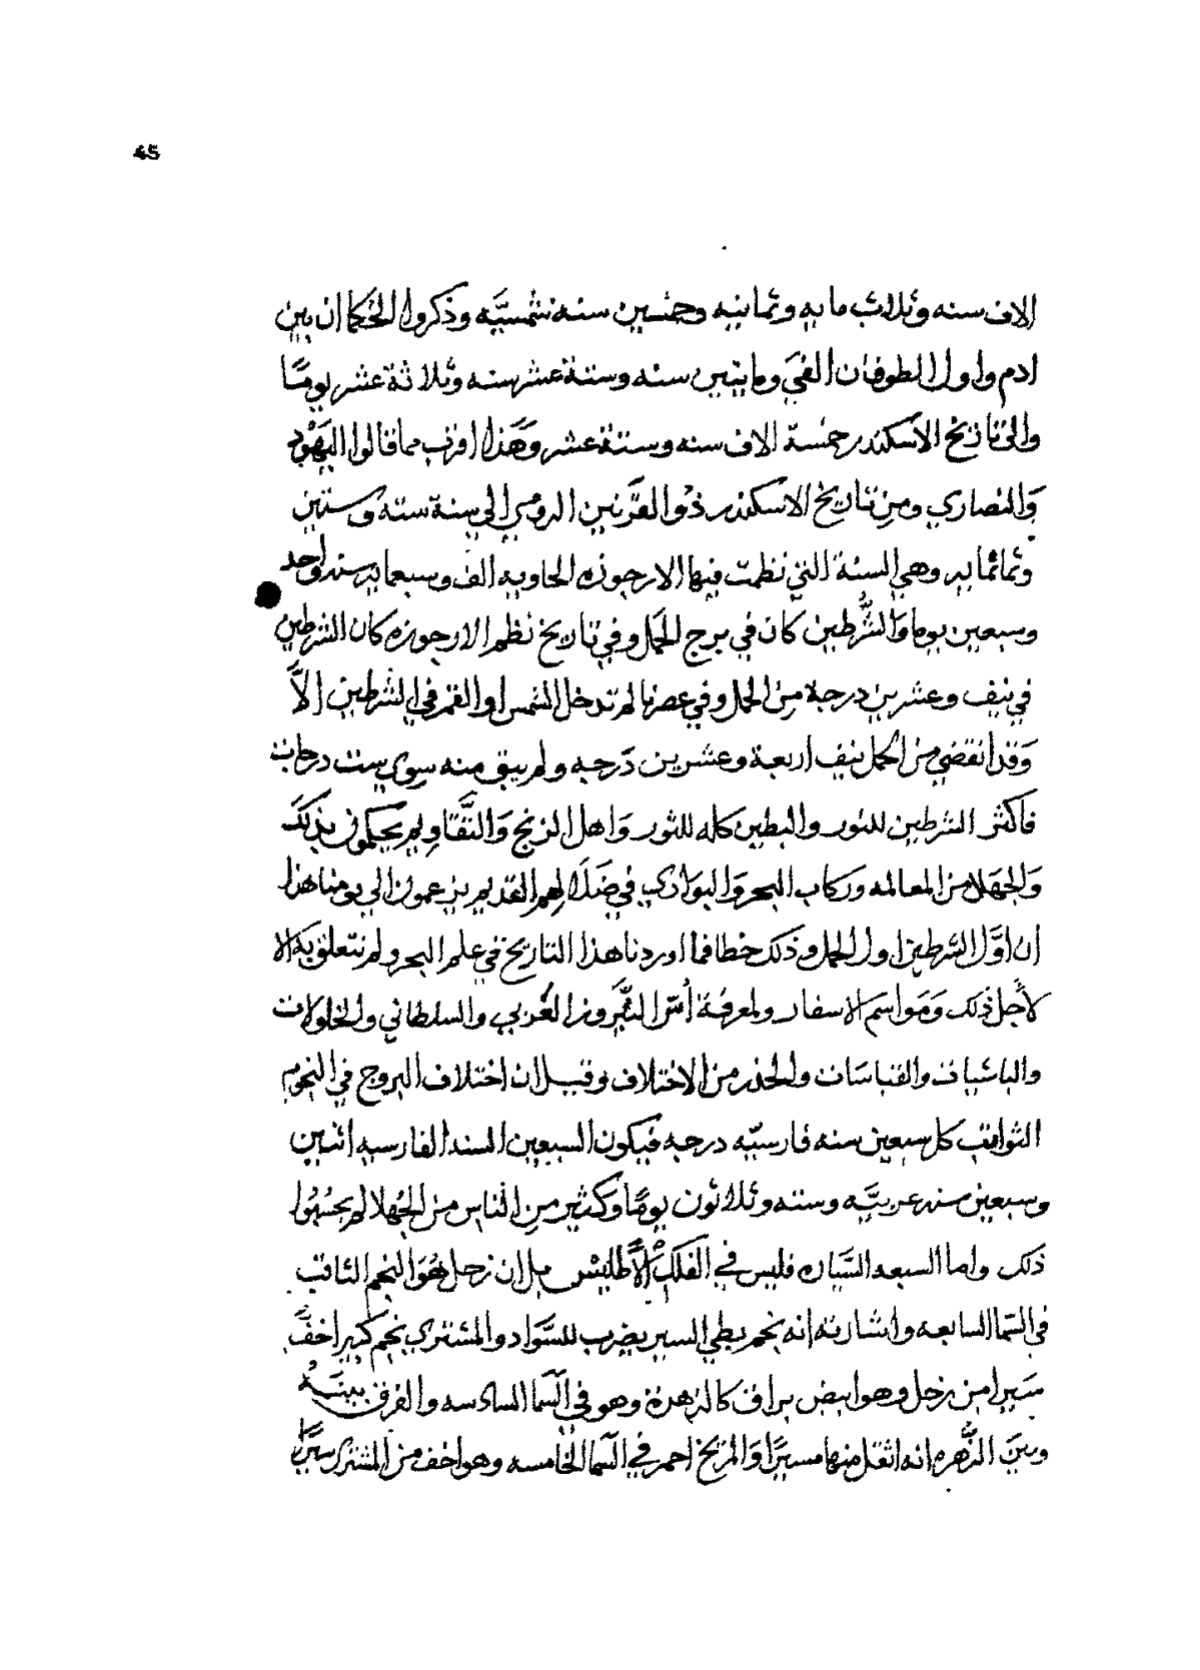 45
الاف سنه وثلاث مايه وثمانيه وخمسين سنة شمسيَّه وذكروا الحُكما ان بين
ادم واول الطوفان الفيَ ومايتين سنه وستة عشر سنه وثلاثة عشر يومًا
والى تاريخ الاسكندر خمسة الاف سنه وستة عشر وَهَذا اقرب مما قالوا اليَهُود
وَالنصاري ومِن تاريخ الاسكندر ذُو القَرنين الرومي الي سنة سته وستين
وثمانمايه وهي السنة التي نظمت فيها الارجوزه الحاويه الف وسبعمايه سنه واحد
وسبعين يوما وَالشَّرطين كان في برج الحَمل وفي تاريخ نظم الارجوزه كان الشرطين
في نيف وعشرين درجة مِن الحمل وفي عصرنا لم تدخل الشمس او القمر في الشرطين الاَّ
وَقد انقضي من الحمل نيف اربعة وعشرين دَرجه ولم يبق منه سِوي ست درجات
فاكثر الشرطين للثور والبطين كله للثور وَاهل الزنج وَالتَّقاويم يحكموُن بذلكَ
وَالجهَلا من المعالمه وركاب البحر وَالبوَادي في ضَلَالهم القديم يزعمون الي يومنا هذا
ان اوَّل الشرطين اول الحمل وذَلك خطا فما اوردنا هذا التاريخ في علم البحر ولم نتعلق به الا
لأجل ذلك وَمَواسم الاسفار ولمعرفة أسّ النَّيروز العُربي والسلطاني والخلولات
والباشيات والقياسَات والحذر من الاختلاف وقيل ان اختلاف البروج في النجوم
الثوابت كل سبعين سنه فارسيّه درجه فيكون السبعين السنه الفارسيه اثنين
وسبعين سنه عربيَّه وسته وثلاثون يومًا وَكثير مِن الناس من الجُهلا لم يحسِبُوا
ذلك واما السبعه السَّياره فليس في الفلك الأطليس بل ان زحل هُوَ النجم الثاقب
في السّما السابعه واشارته انه نجم بطي السير يضرب للسَّواد والمشتري نجم كبير اخفَّ
سَيرا من زحل وهو ابيض براق كالزهرة وهو في السّما السادسه والفرق بينَه
وبينَ الزُّهره انه اثقل منها مسيرًا وَالمريخ احمر في السّما الخامسه وهو اخف من المشتري سيرًا